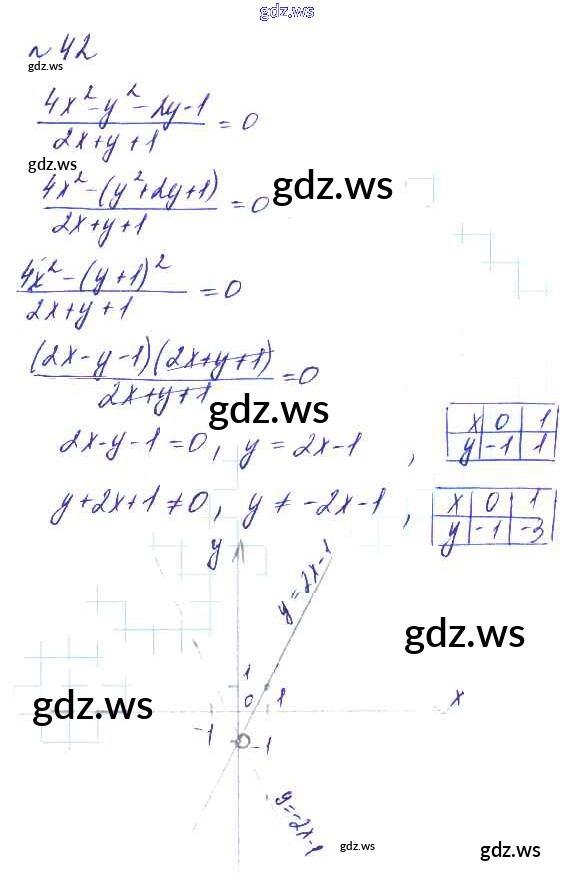 gdz.ws
№42
gdz.ws
4x² - y² - 2y - 1 / 2x + y + 1 = 0
gdz.ws
4x² - (y² + 2y + 1) / 2x + y + 1 = 0
gdz.ws
4x² - (y + 1)² / 2x + y + 1 = 0
(2x - y - 1)(2x + y + 1) / 2x + y + 1 = 0
gdz.ws
2x - y - 1 = 0, y = 2x - 1, x 0 1
y -1 1
y + 2x + 1 ≠ 0, y ≠ -2x - 1, x 0 1
y -1 -3
y
y = 2x - 1
gdz.ws
1
0 1 x
gdz.ws
-1
-1
y = -2x - 1
gdz.ws
gdz.ws